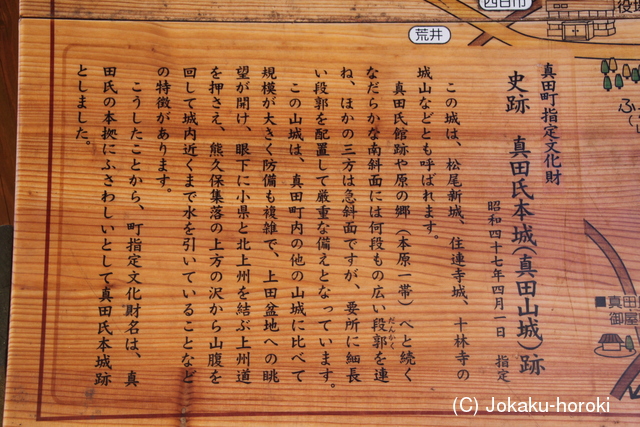 四日市
役場
荒井
真田町指定文化財
史跡　真田氏本城（真田山城）跡
昭和四十七年四月一日　指定
この城は、松尾新城、住連寺城、十林寺の
城山などとも呼ばれます。
真田氏館跡や原の郷（本原一帯）へと続く
なだらかな南斜面には何段もの広い段郭を連
だんかく
ね、ほかの三方は急斜面ですが、要所に細長
い段郭を配置して厳重な備えとなっています。
この山城は、真田町内の他の山城に比べて
規模が大きく防備も複雑で、上田盆地への眺
望が開け、眼下に小県と北上州を結ぶ上州道
を押さえ、熊久保集落の上方の沢から山腹を
回して城内近くまで水を引いていることなど
の特徴があります。
こうしたことから、町指定文化財名は、真
田氏の本拠にふさわしいとして真田氏本城跡
としました。
ふ
真田
御屋
(C) Jokaku-horoki